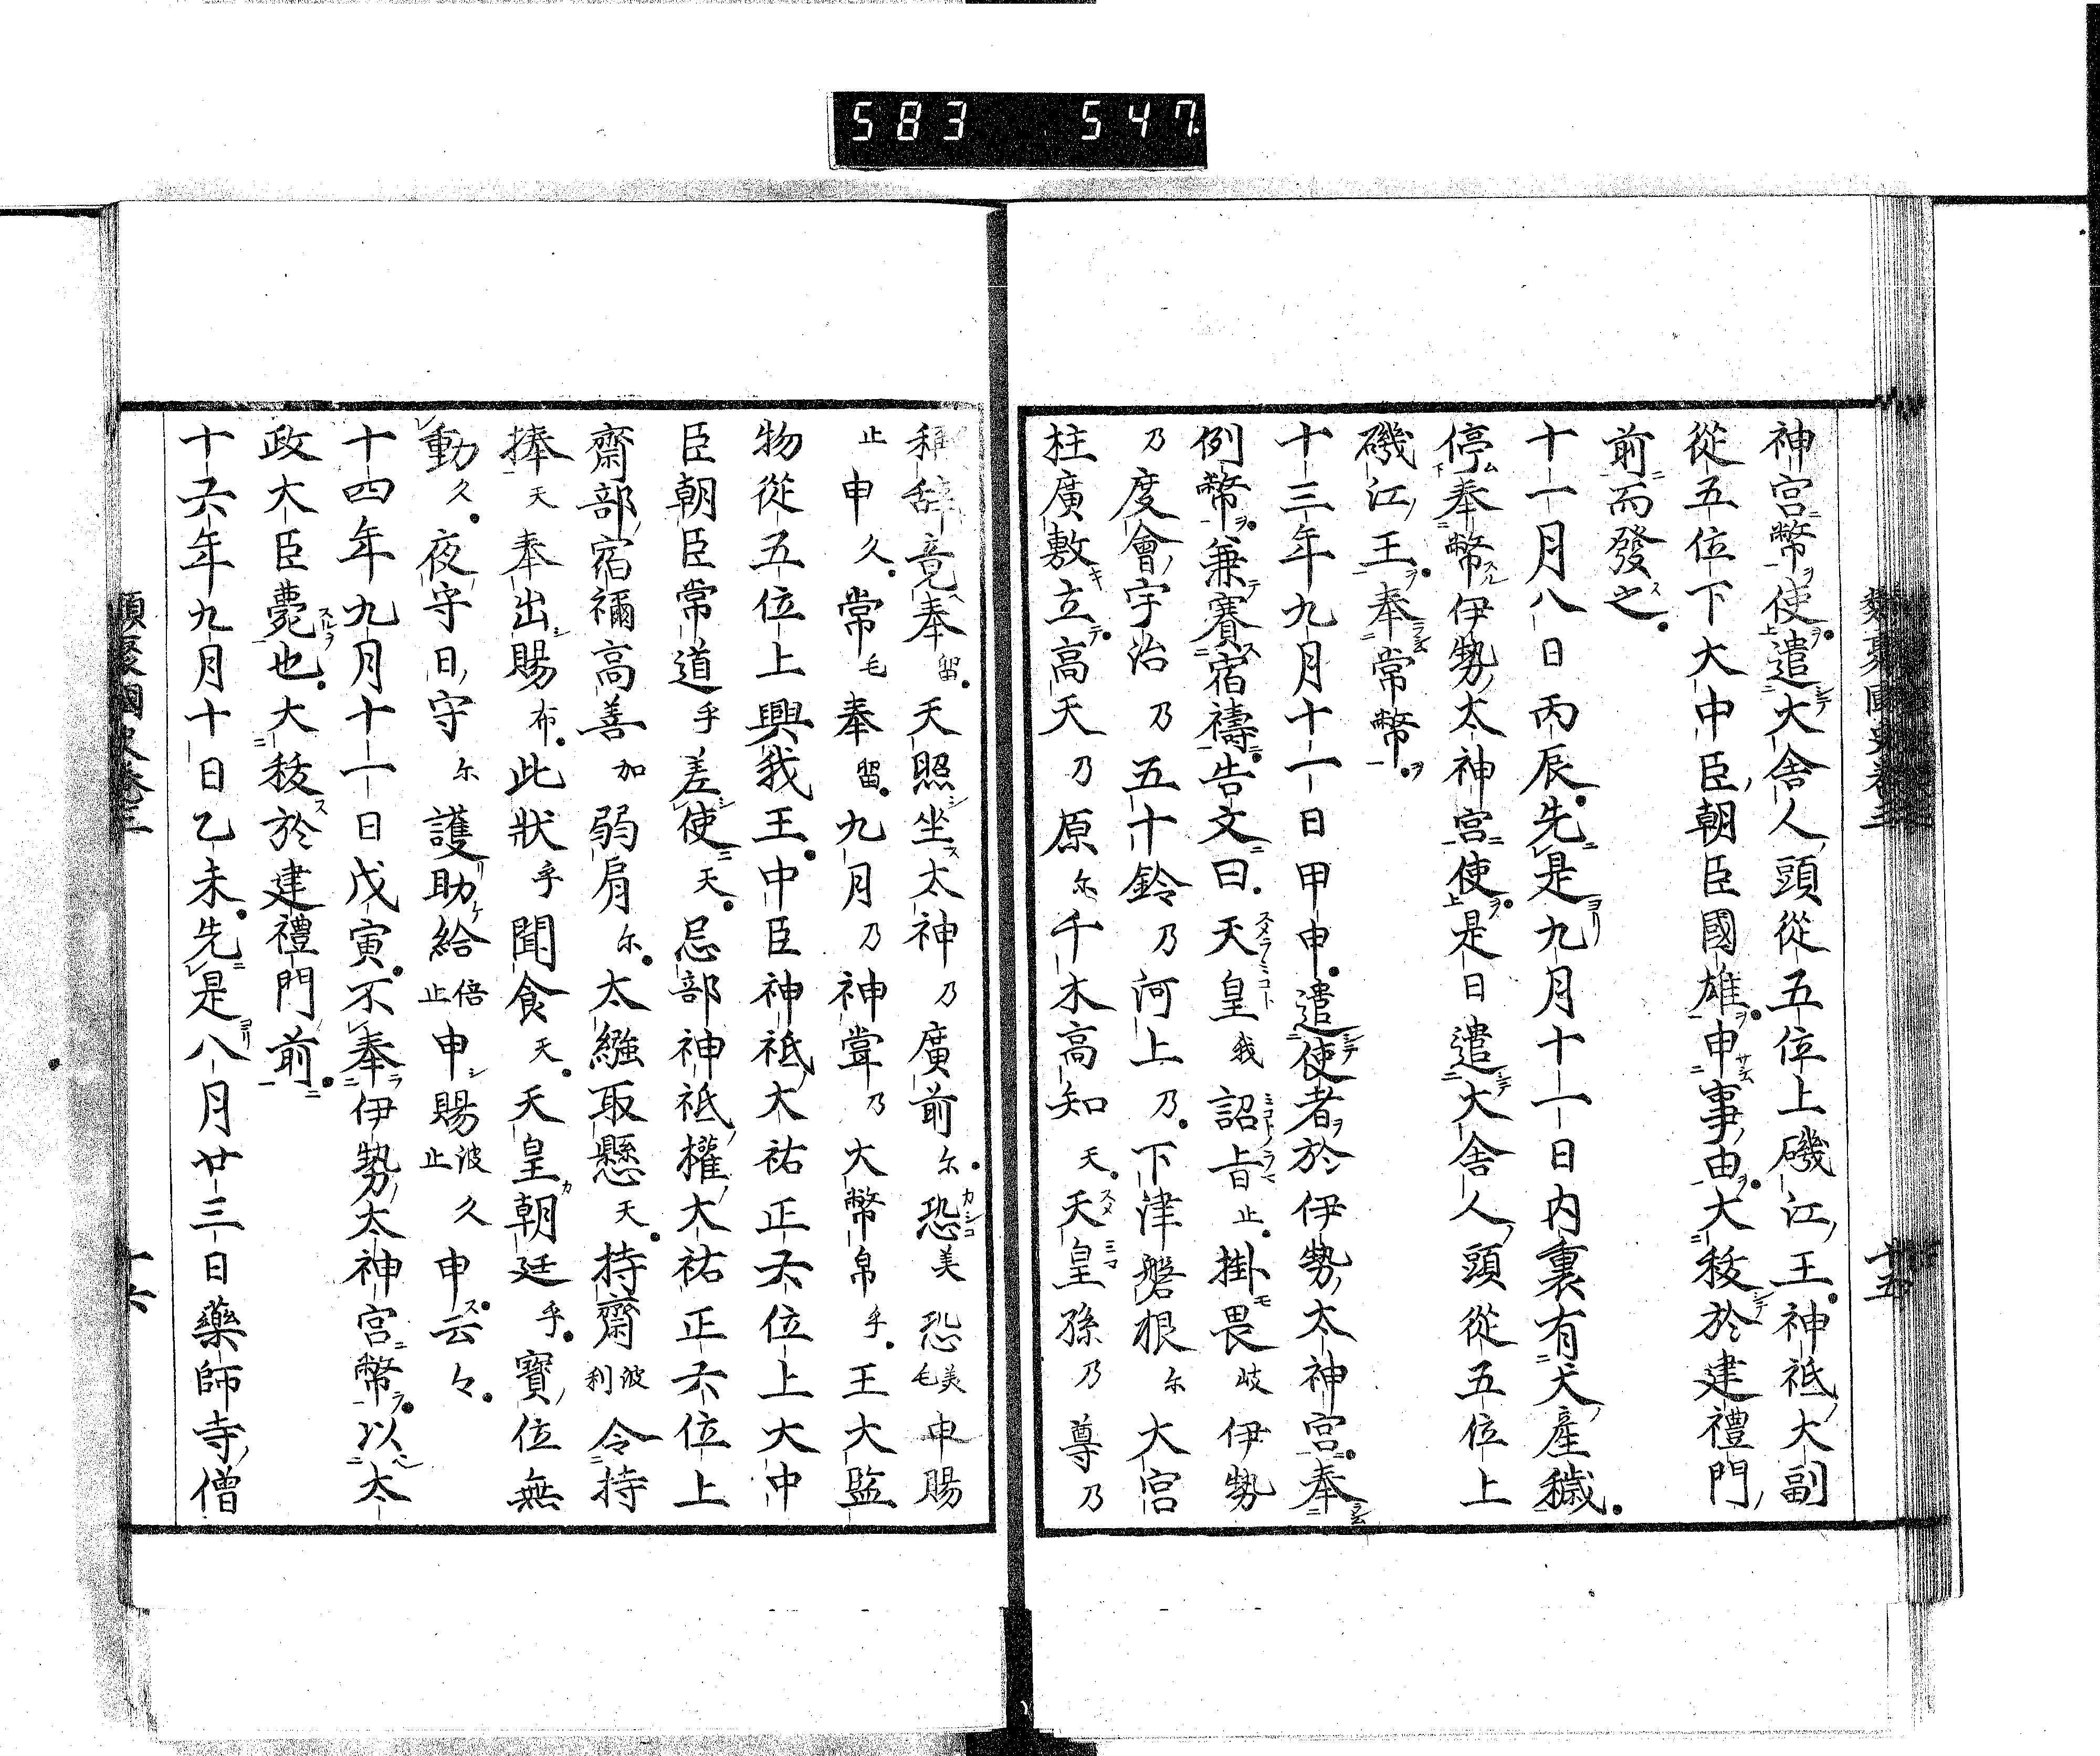 583 547
類聚國史卷三
十五
神宮幣使遣大舍人頭從五位上磯江王神祇大副
從五位下大中臣朝臣國雄申事由大秡於建禮門
前而發之
十一月八日丙辰先是九月十一日内裏有犬產穢
停奉幣伊勢太神宮使是日遣大舍人頭從五位上
磯江王奉常幣
十三年九月十一日甲申遣使者於伊勢太神宮奉
例幣兼賽宿禱告文曰天皇我詔旨止掛畏岐伊勢
乃度會宇治乃五十鈴乃河上乃下津磐根尓大宮
柱廣敷立高天乃原尓千木高知天天皇孫乃尊乃
稱辞竟奉留天照坐太神乃廣前尓恐美恐美毛申賜
止申久常毛奉留九月乃神甞乃大幣帛乎王大監
物從五位上興我王中臣神祇大祐正六位上大中
臣朝臣常道乎差使天忌部神祇權大祐正六位上
齋部宿禰高善加弱肩尓太繦取懸天持齋波利令持
捧天奉出賜布此狀乎聞食天天皇朝廷乎寳位無
動久夜守日守尓護助給倍止申賜波久止申云々
十四年九月十一日戊寅不奉伊勢太神宮幣以太
政大臣薨也大秡於建禮門前
十六年九月十日乙未先是八月廿三日藥師寺僧
類聚國史卷三
十六